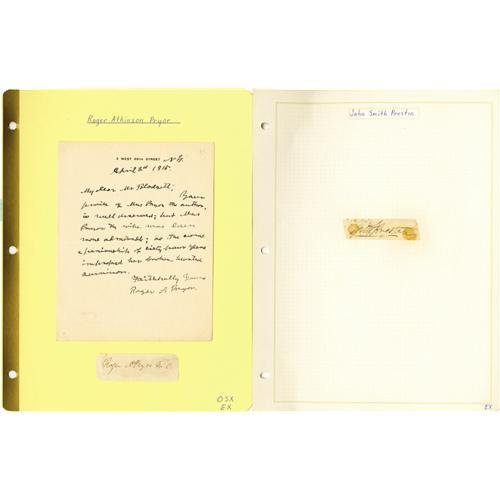 Roger Atkinson Pryor
3 WEST 69th STREET N.Y.
April 2d 1915.
My dear Mr Blodgett;
Your
praise to Mrs Pryor the author,
is well deserved; but Mrs
Pryor the wife was even
more admirable; as the
companionship of sixty-seven years
her broken hearted
Faithfully Yours
Roger A Pryor
Roger A Pryor
OSX
EX
John Smith Preston
EX